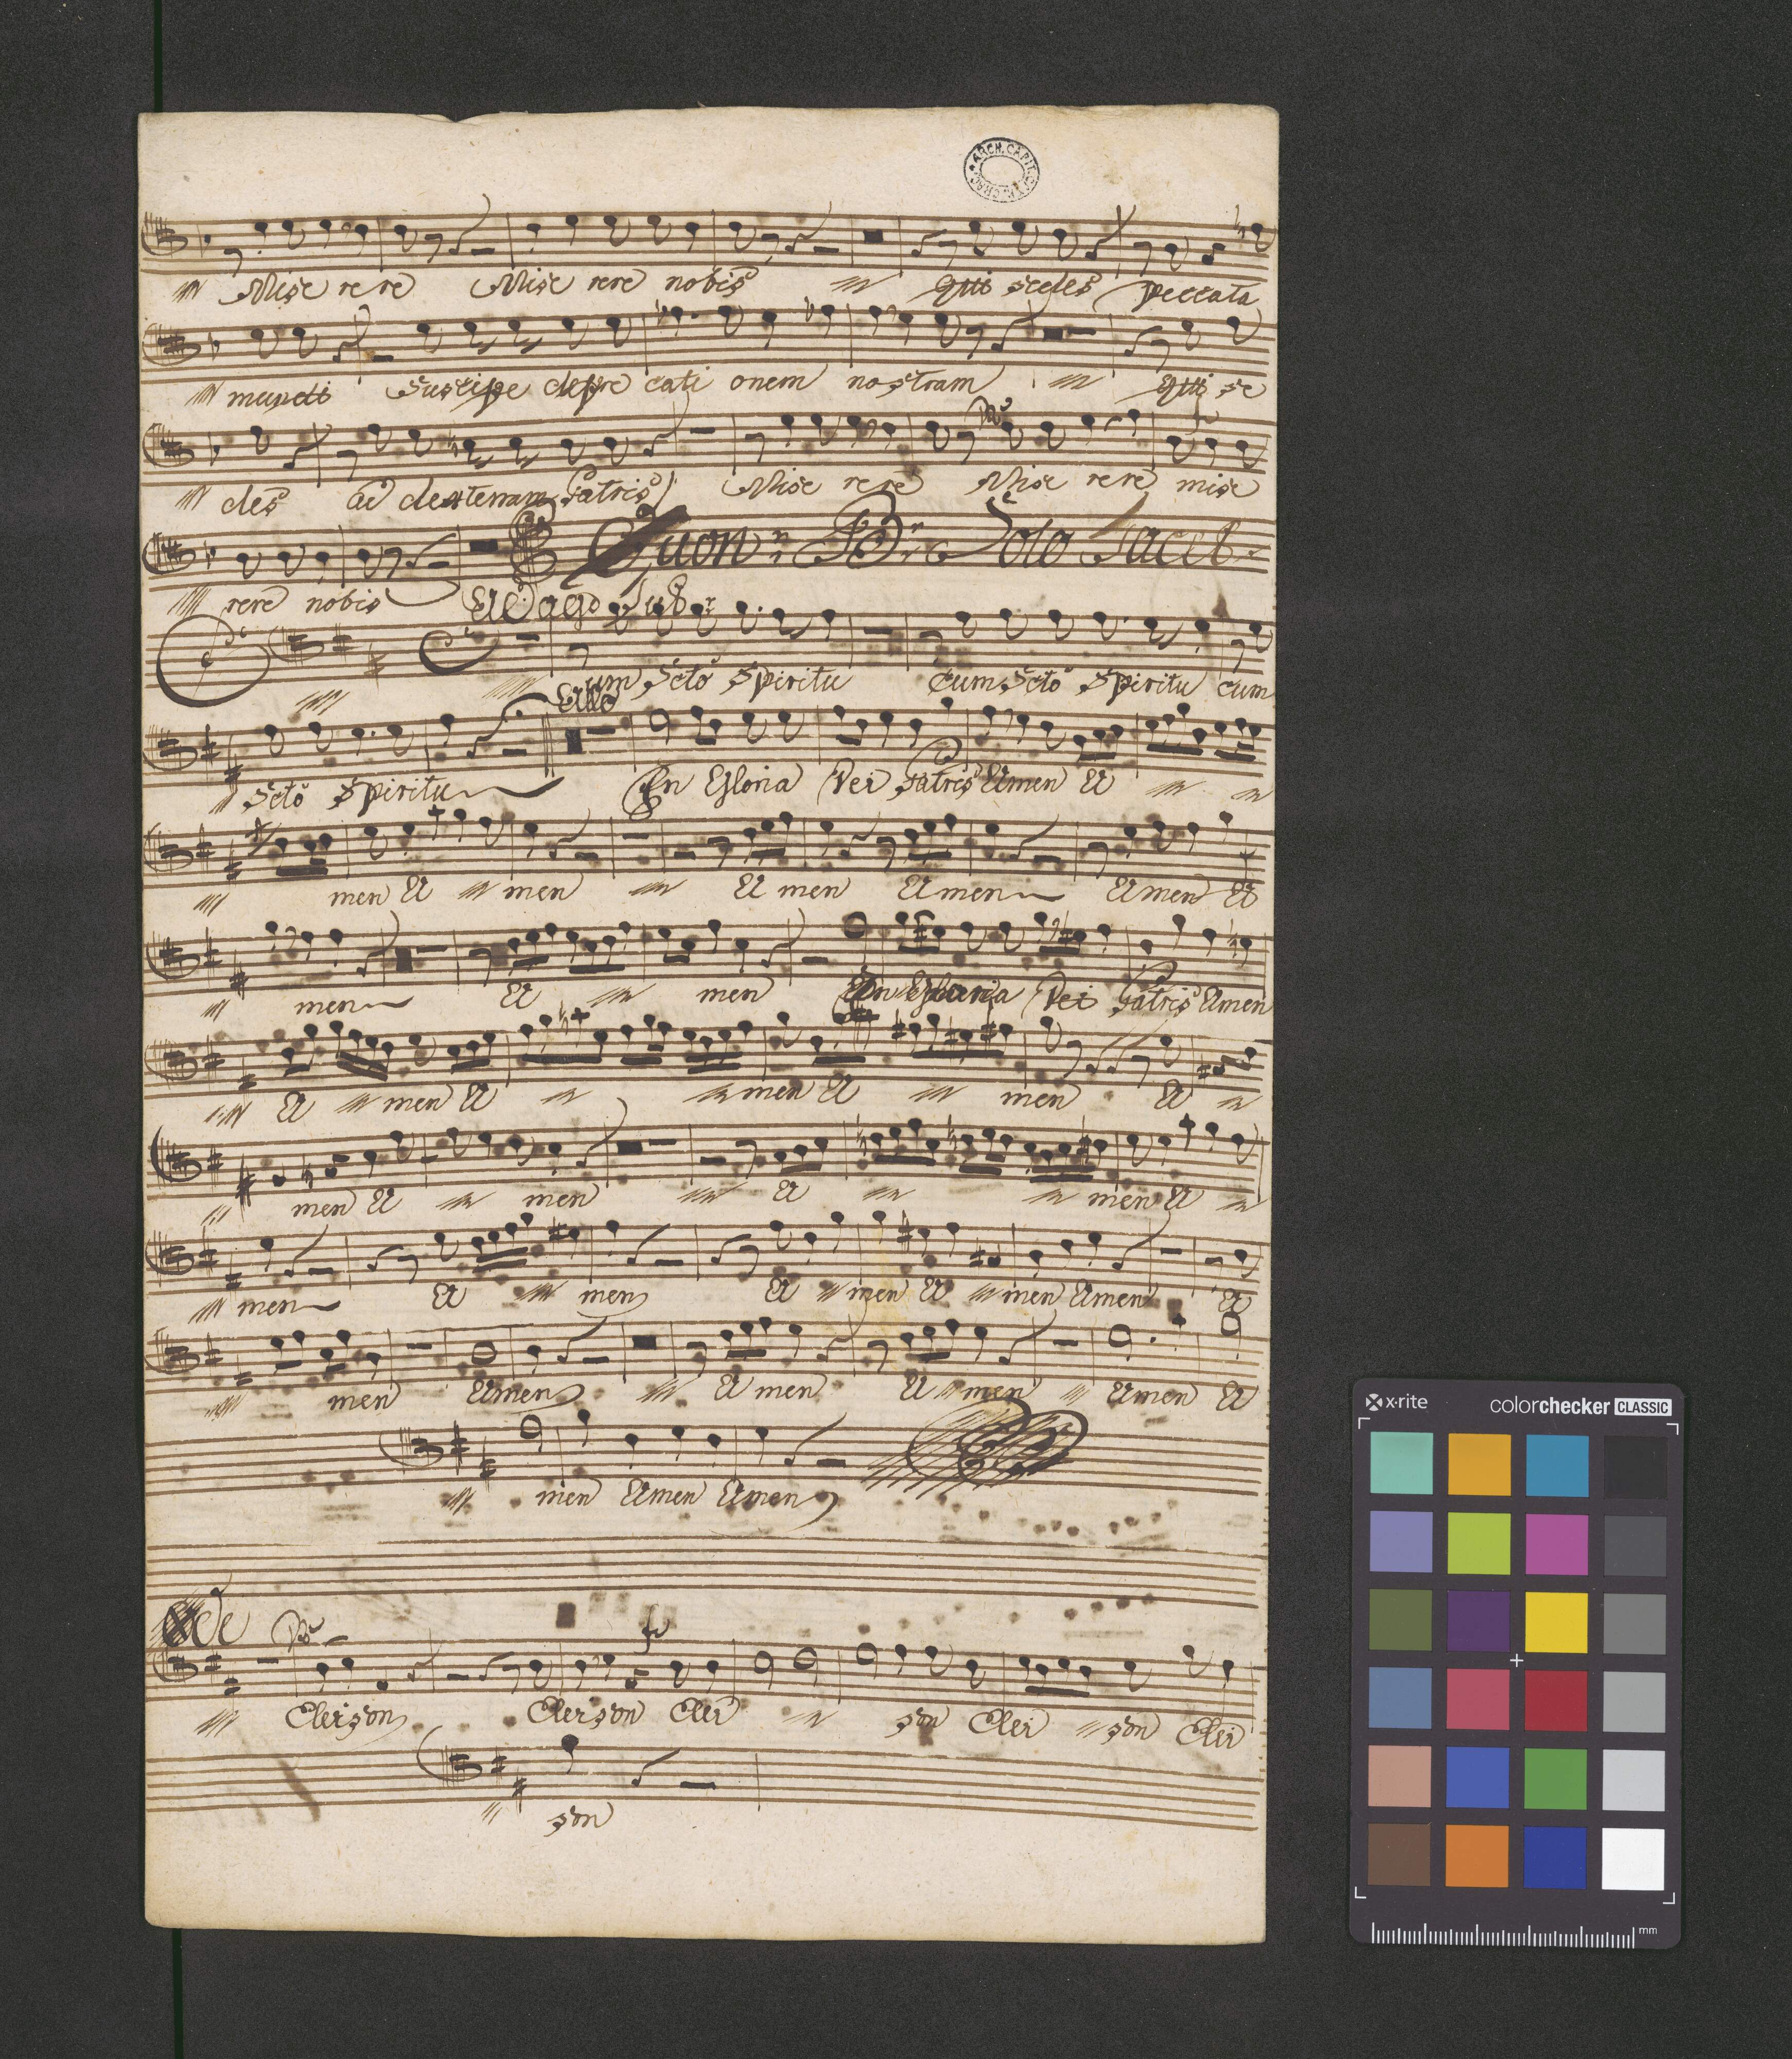 ARCH. CAPIT. CRAC.
Mise rere Mise rere nobis Qui sedes peccata
mundi Suscipe depre cati onem nostram Qui se
des ad dexteram Patris Mise rere Mise rere mise
rere nobis Solo Tacet
Adagio
um Scto Spiritu Cum Scto Spiritu cum
Allo
Scto Spiritu In Gloria Dei Patris Amen A
men A men A men Amen Amen A
men A men In Gloria Dei Patris Amen
A men A men A men A
men A men A men A
men A men A men A men Amen A
men Amen A men A men Amen A
men Amen Amen
Eleison Eleison Elei son Elei son Elei
son
x·rite colorchecker CLASSIC
mm